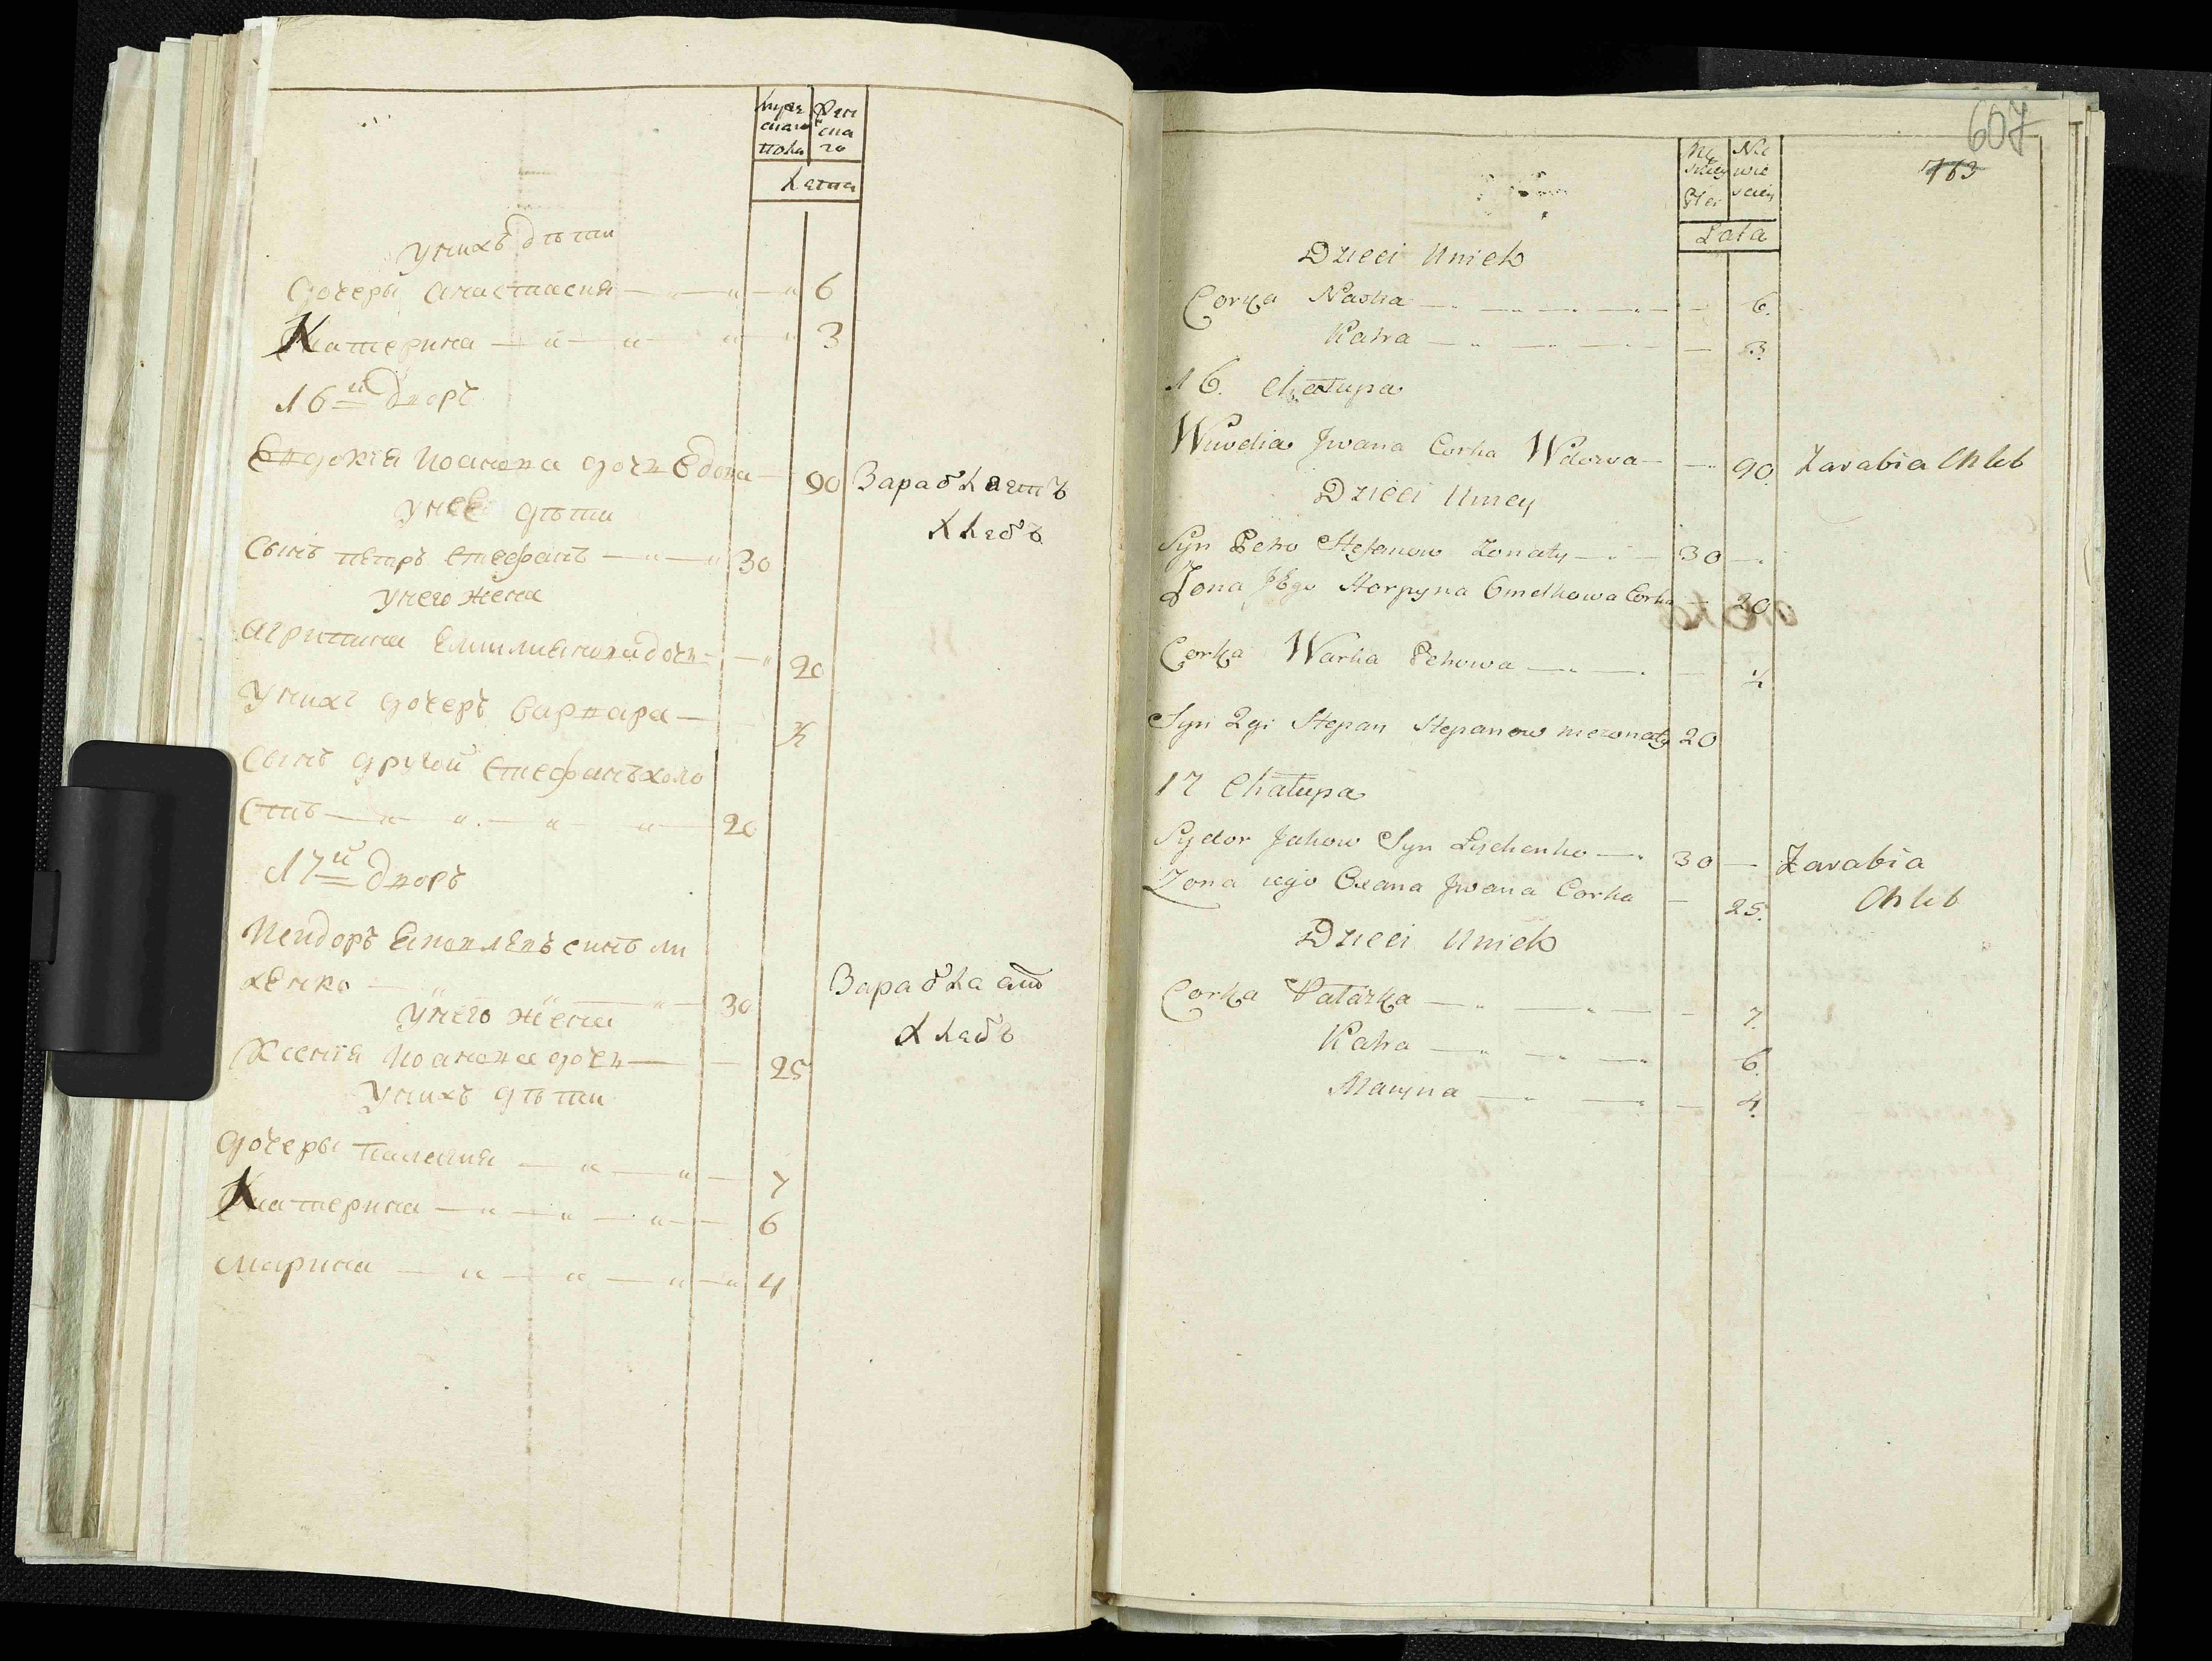 мужескаго пола
женскаго
Лета
у нихъ дѣти
Дочеры Анастасия 6
Катерина 3
16й дворъ
Евдокія Иоанова дочь вдова 90 Зарабляетъ
у нее дѣти хлебъ
Сынъ петръ Стефанъ 30
у него жена
Агрипина Емилианова дочь 20
у нихъ дочеръ Варвара ½
Сынъ другой Стефанъ холо
стъ 20
17й дворъ
Исидоръ Яковлевъ синъ ли
хенко 30 Зарабляетъ
у него жена хлебъ
Ксения Иоанова дочь 25
у нихъ дѣти
Дочеры Палагия 7
Катерина 6
Марина 4
607
763
Męskiey Płci
Niewieściey
Lata
Dzieci Unich
Corka Nastia 6.
Katra 3.
16. Chałupa
Wiwdia Jwana Corka Wdowa 90. Zarabia Chleb
Dzieci Uniey
Syn Petro Stefanow Zonaty 30
Zona Jego Horpyna Omelkowa Corka 20
Corka Warka Petrowa ½
Syn 2gi Stepan Stepanow niezonaty 20
17 Chałupa
Sydor Jakow Syn Lychenko 30 Zarabia
Zona iego Oxana Jwana Corka 25. Chleb
Dzieci Unich
Corka Palazka 7.
Katra 6.
Maryna 4.